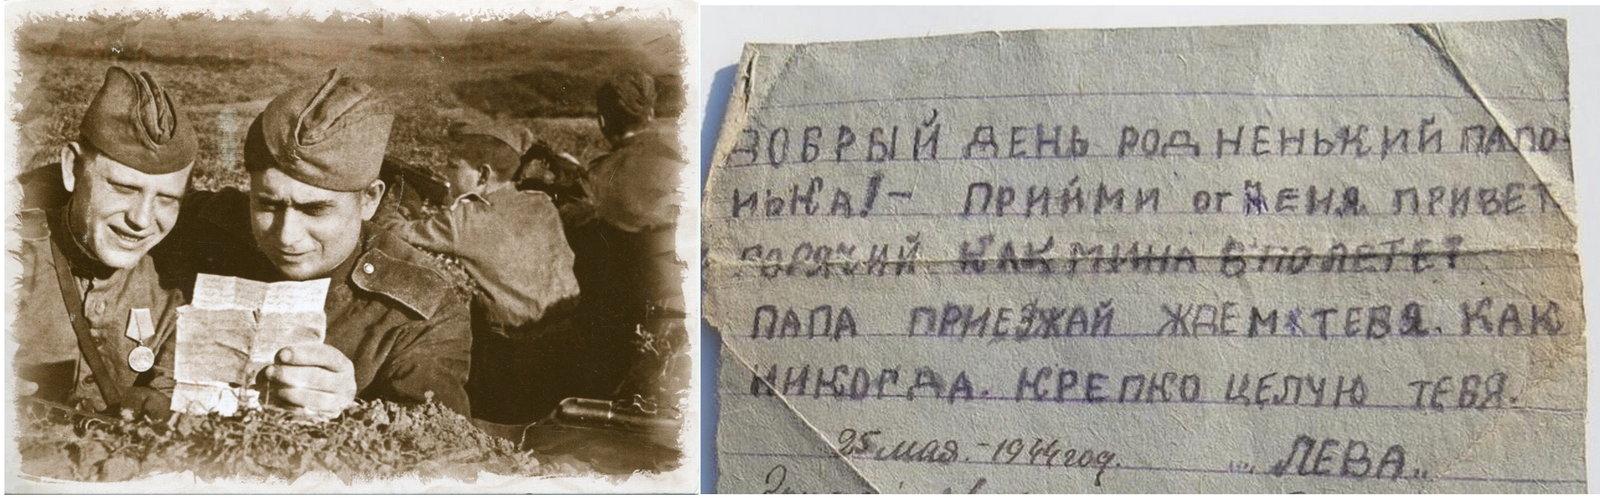 ДОБРЫЙ ДЕНЬ РОДНЕНЬКИЙ ПАПО-
НЬКА!- ПРИЙМИ от МЕНЯ ПРИВЕТ
ГОРЯЧИЙ КАК МИНА В ПОЛЕТЕ!
ПАПА ПРИЕЗЖАЙ ЖДЕМ ТЕБЯ. КАК
НИКОГДА. КРЕПКО ЦЕЛУЮ ТЕБЯ.
25 мая.-1944 год. ... ЛЕВА..